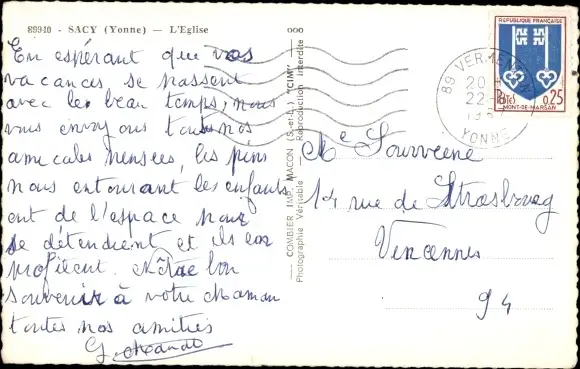 89940 - SACY (Yonne) — L'Eglise
En espérant que vos
vacances se passent
avec le beau temps, nous
vous envoyons toutes nos
amicales pensées, les pins
nous entourant les enfants
ont de l'espace pour
se détendrent et ils en
profitent. Notre bon
souvenir à votre Maman
toutes nos amitiés
G.
COMBIER IMP. MACON (S.-et-L.) "CIM"
Photographie Véritable - Reproduction Interdite
REPUBLIQUE FRANÇAISE
Postes 0,25
MONT-DE-MARSAN
89 VERMENTON
20 H
22 -
YONNE
Me Souveene
14 rue de Strasbourg
Vincennes
94